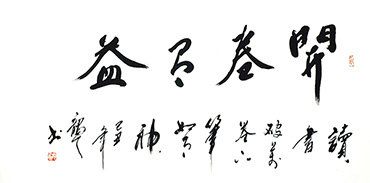 開卷有益
讀書破萬卷下筆如有神